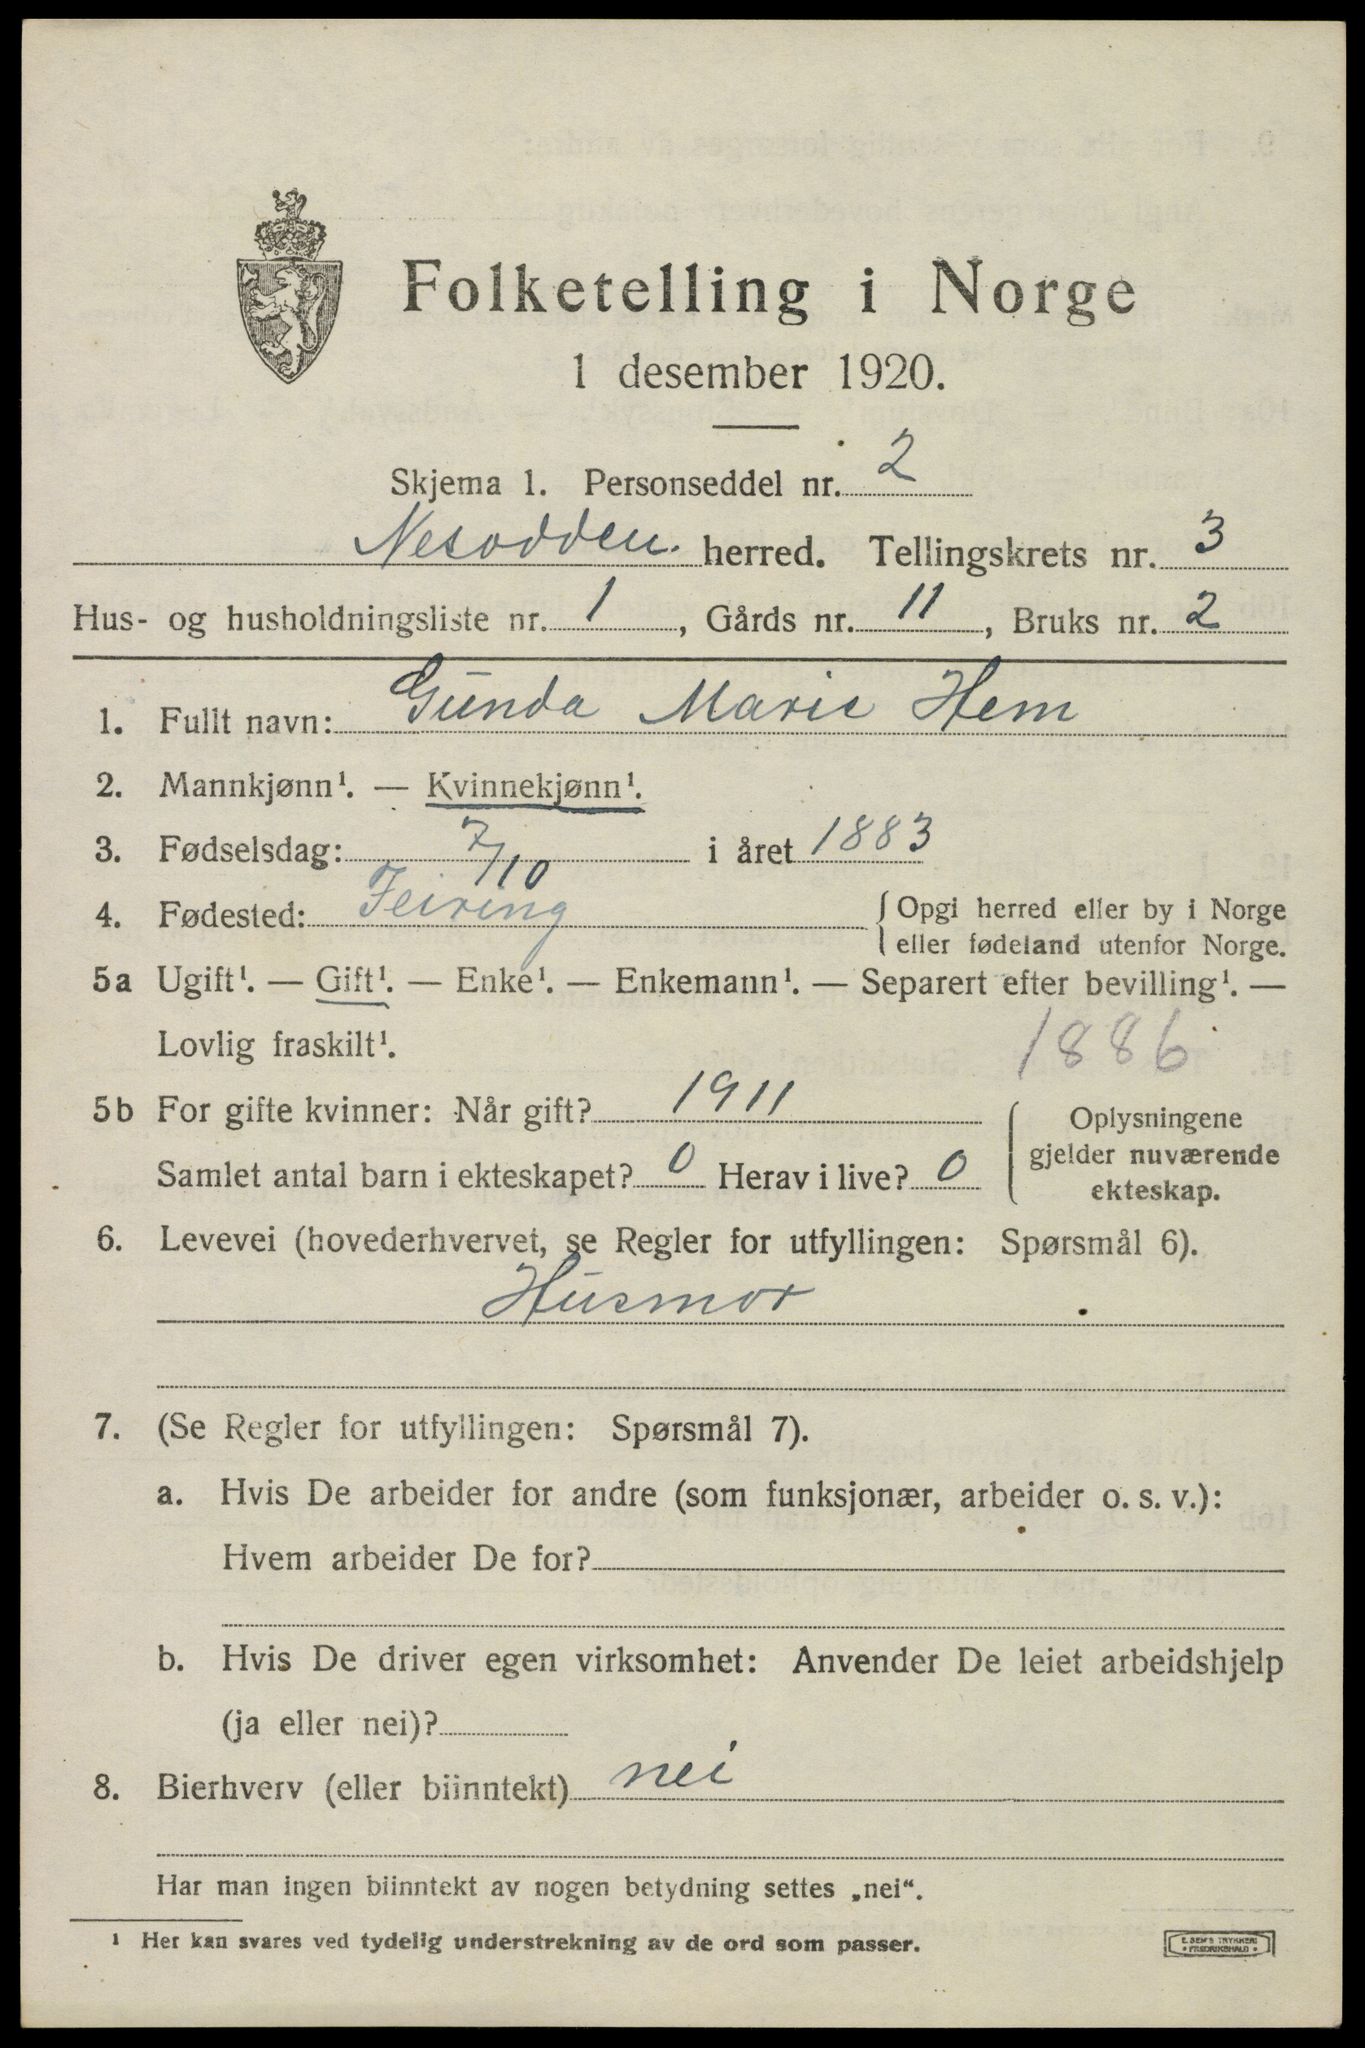 Folketelling i Norge
1 desember 1920.
Skjema 1. Personseddel nr. 2
Nesodden herred. Tellingskrets nr. 3
Hus- og husholdningsliste nr. 1, Gårds nr. 11, Bruks nr. 2
1. Fullt navn: Gunda Marie Hem
2. Mannkjønn¹. — Kvinnekjønn¹.
3. Fødselsdag: 7/10 i året 1883
4. Fødested: Feiring { Opgi herred eller by i Norge
eller fødeland utenfor Norge.
5a Ugift¹. — Gift¹. — Enke¹. — Enkemann¹. — Separert efter bevilling¹. —
Lovlig fraskilt¹. 1886
5b For gifte kvinner: Når gift? 1911
Samlet antal barn i ekteskapet? 0 Herav i live? 0
{ Oplysningene
gjelder nuværende
ekteskap.
6. Levevei (hovederhvervet, se Regler for utfyllingen: Spørsmål 6).
Husmor
7. (Se Regler for utfyllingen: Spørsmål 7).
a. Hvis De arbeider for andre (som funksjonær, arbeider o. s. v.):
Hvem arbeider De for?
b. Hvis De driver egen virksomhet: Anvender De leiet arbeidshjelp
(ja eller nei)?
8. Bierhverv (eller biinntekt) nei
Har man ingen biinntekt av nogen betydning settes „nei“.
¹ Her kan svares ved tydelig understrekning av de ord som passer.
E. SEM'S TRYKKERI
• FREDRIKSHALD •